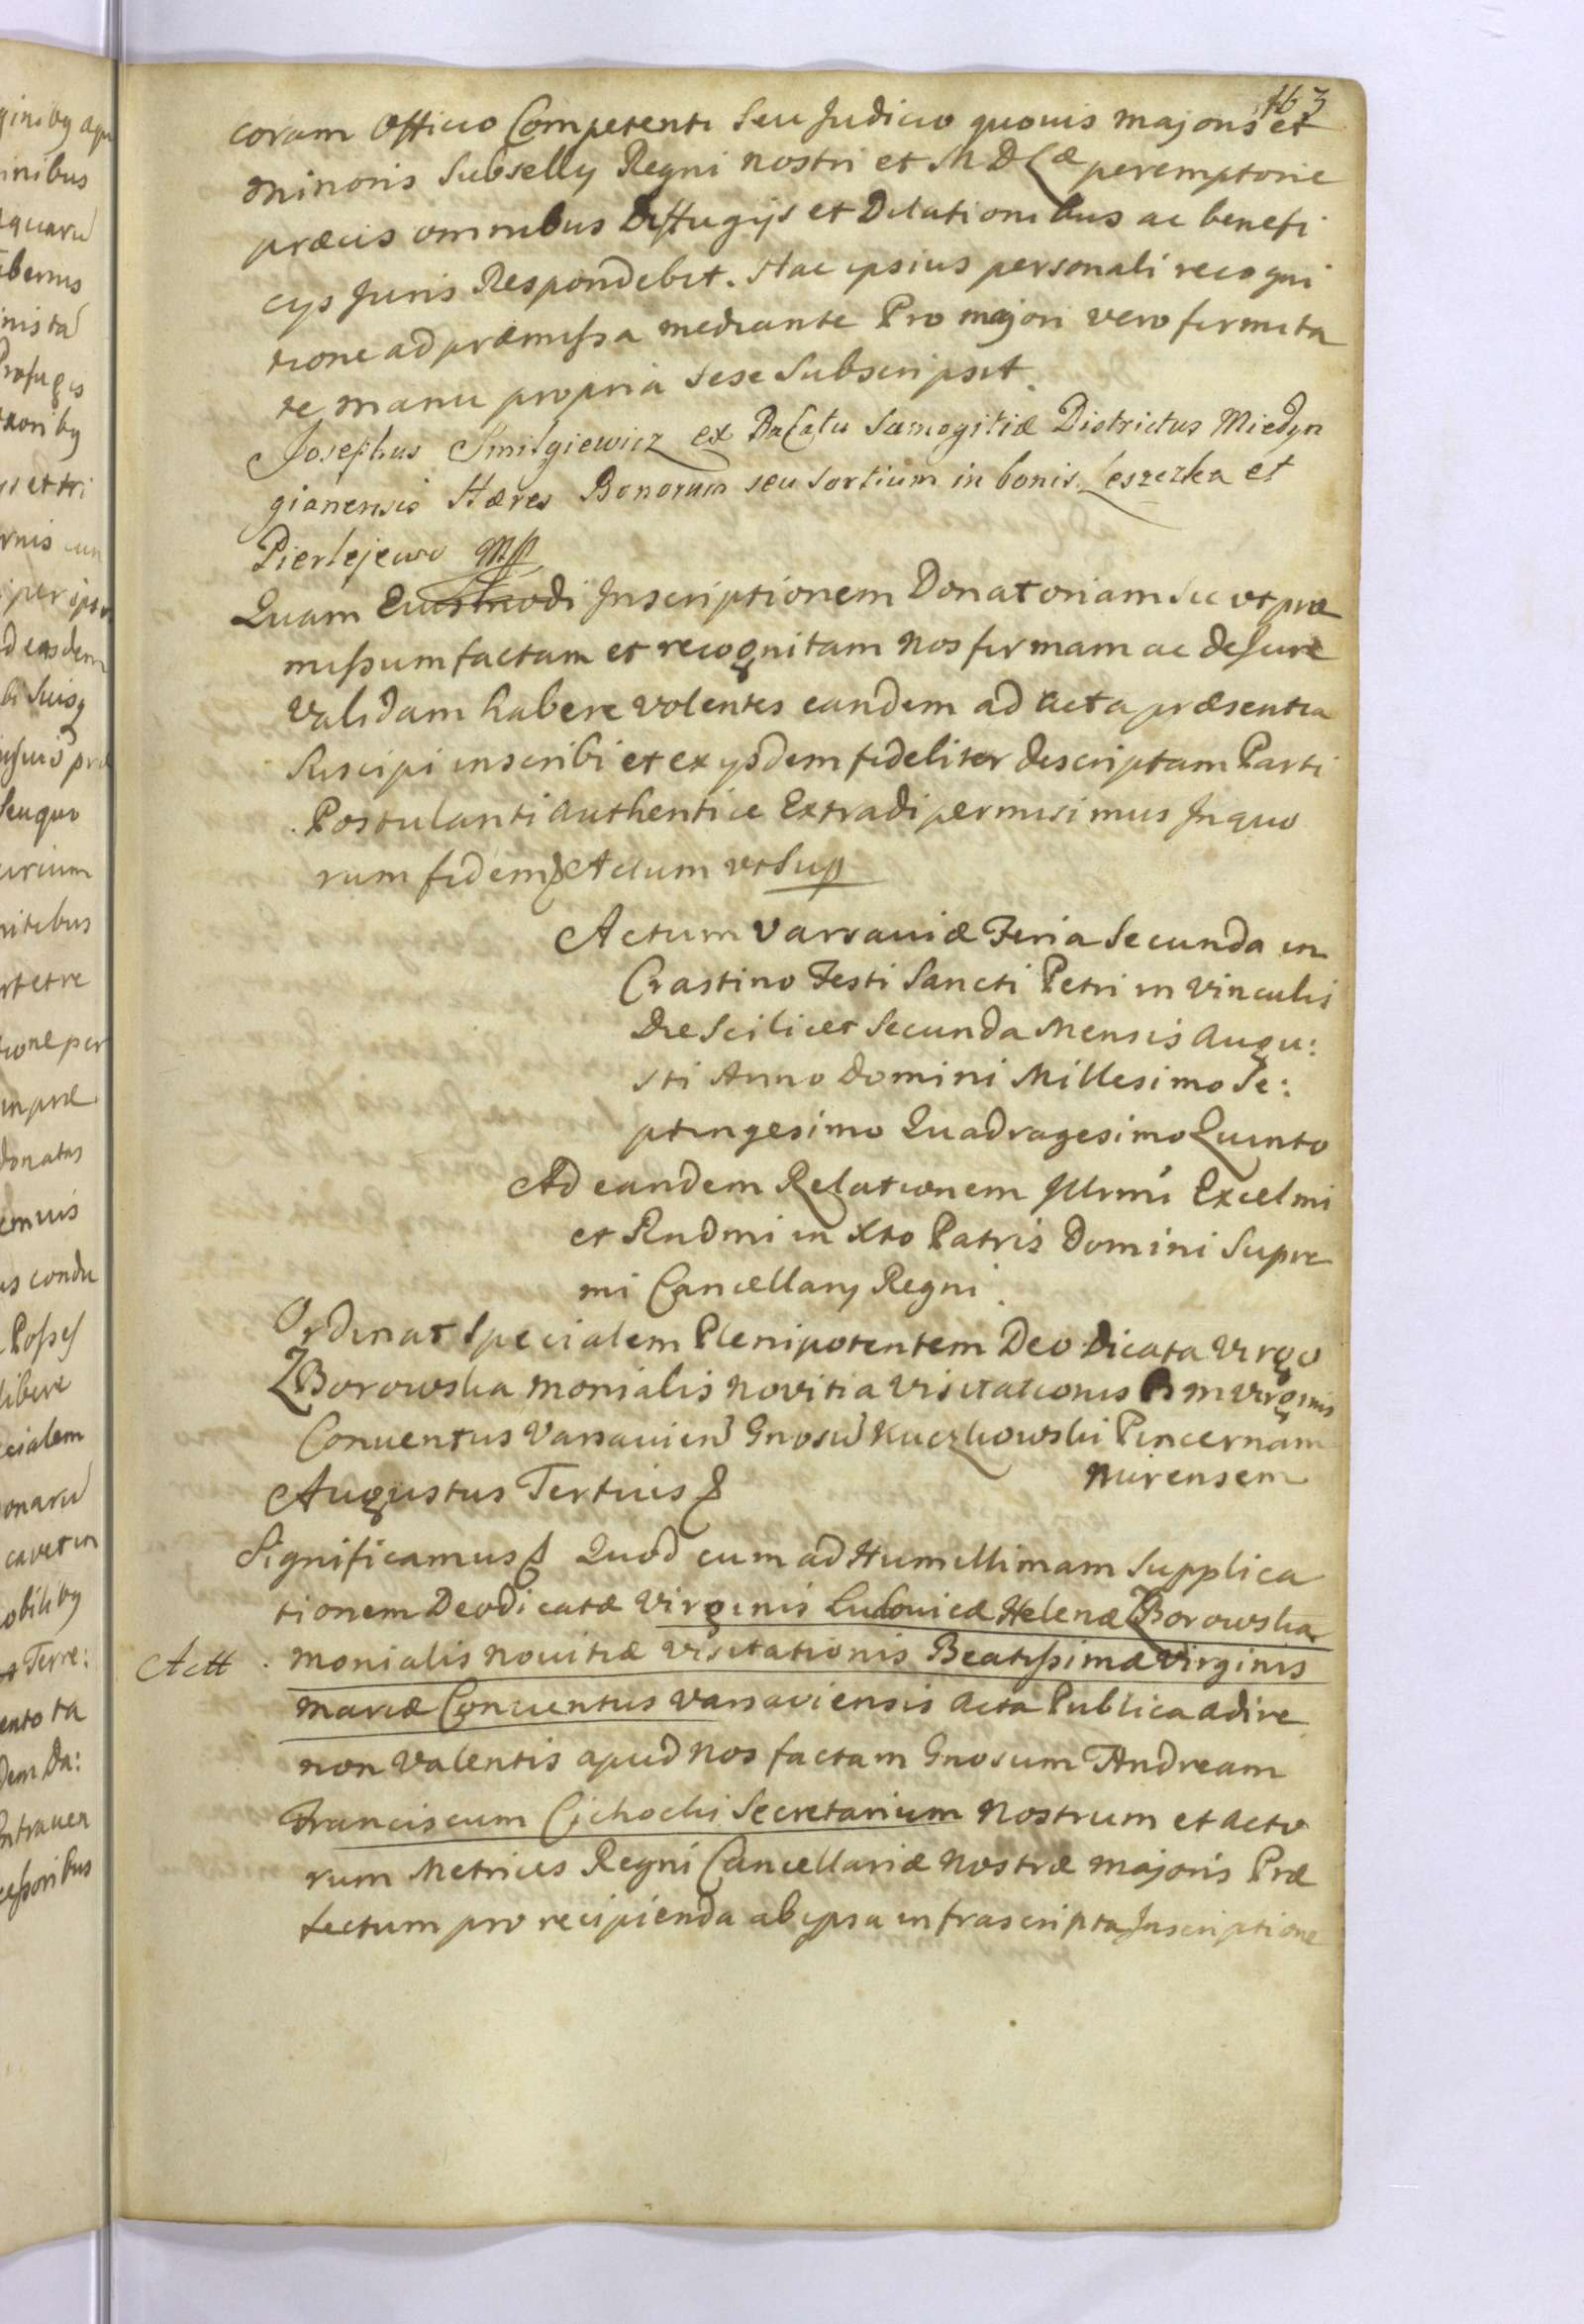 163
coram Officio Competenti Seu Judicio quovis majoris et
minoris Subselly Regni nostri et M D L æ peremptorie
præcis omnibus Diffugijs et Dilationibus ac benefi
cys Juris Respondebit. Hac ipsius personali recogni
tione ad præmissa mediante Pro majori vero firmita
te manu propria Sese Subscripsit.
Josephus Smilgiewicz ex Ducatu Samogitiæ Districtus Miedyn
gianensis Hæres Bonorum seu Sortium in bonis Leszezka et
Pierlejewo Mp
Quam Eiusmodi Inscriptionem Donatoriam Sic ut præ
missum factam et recognitam Nos firmam ac de Jure
Validam habere volentes eandem ad Acta præsentia
Suscipi inscribi et ex ysdem fideliter descriptam Parti
Postulanti authentice Extradi permisimus In quo
rum fidem & Actum ut Sup
Actum Varsaviæ Feria Secunda in
Crastino Festi Sancti Petri in Vinculis
Die Scilicet Secunda Mensis Augu:
sti Anno Domini Millesimo Se:
ptingesimo Quadragesimo Quinto
Ad eandem Relationem Illrmi Excelmi
et Rndmi in Xto Patris Domini Supre
mi Cancellary Regni.
Ordinat Specialem Plenipotentem Deo Dicata Virgo
Zborowska monialis Novitia Visitationis B M Virginis
Conventus Varsavien Gnosu Kuczkowski Pincernam
Nurensem
Augustus Tertius &
Significamus & Quod cum ad Humillimam Supplica
tionem Deodicatæ Virginis Ludovicæ Helenæ Zborowska
Actt monialis novitiæ visitationis Beatissimæ Virginis
mariæ Conventus varsaviensis Acta Publica adire
non valentis apud Nos factam Gnosum Andream
Franciscum Cichocki Secretarium Nostrum et Acto
rum Metrices Regni Cancellariæ Nostræ majoris Præ
fectum pro recipienda ab ipsa infrascripta Inscriptione